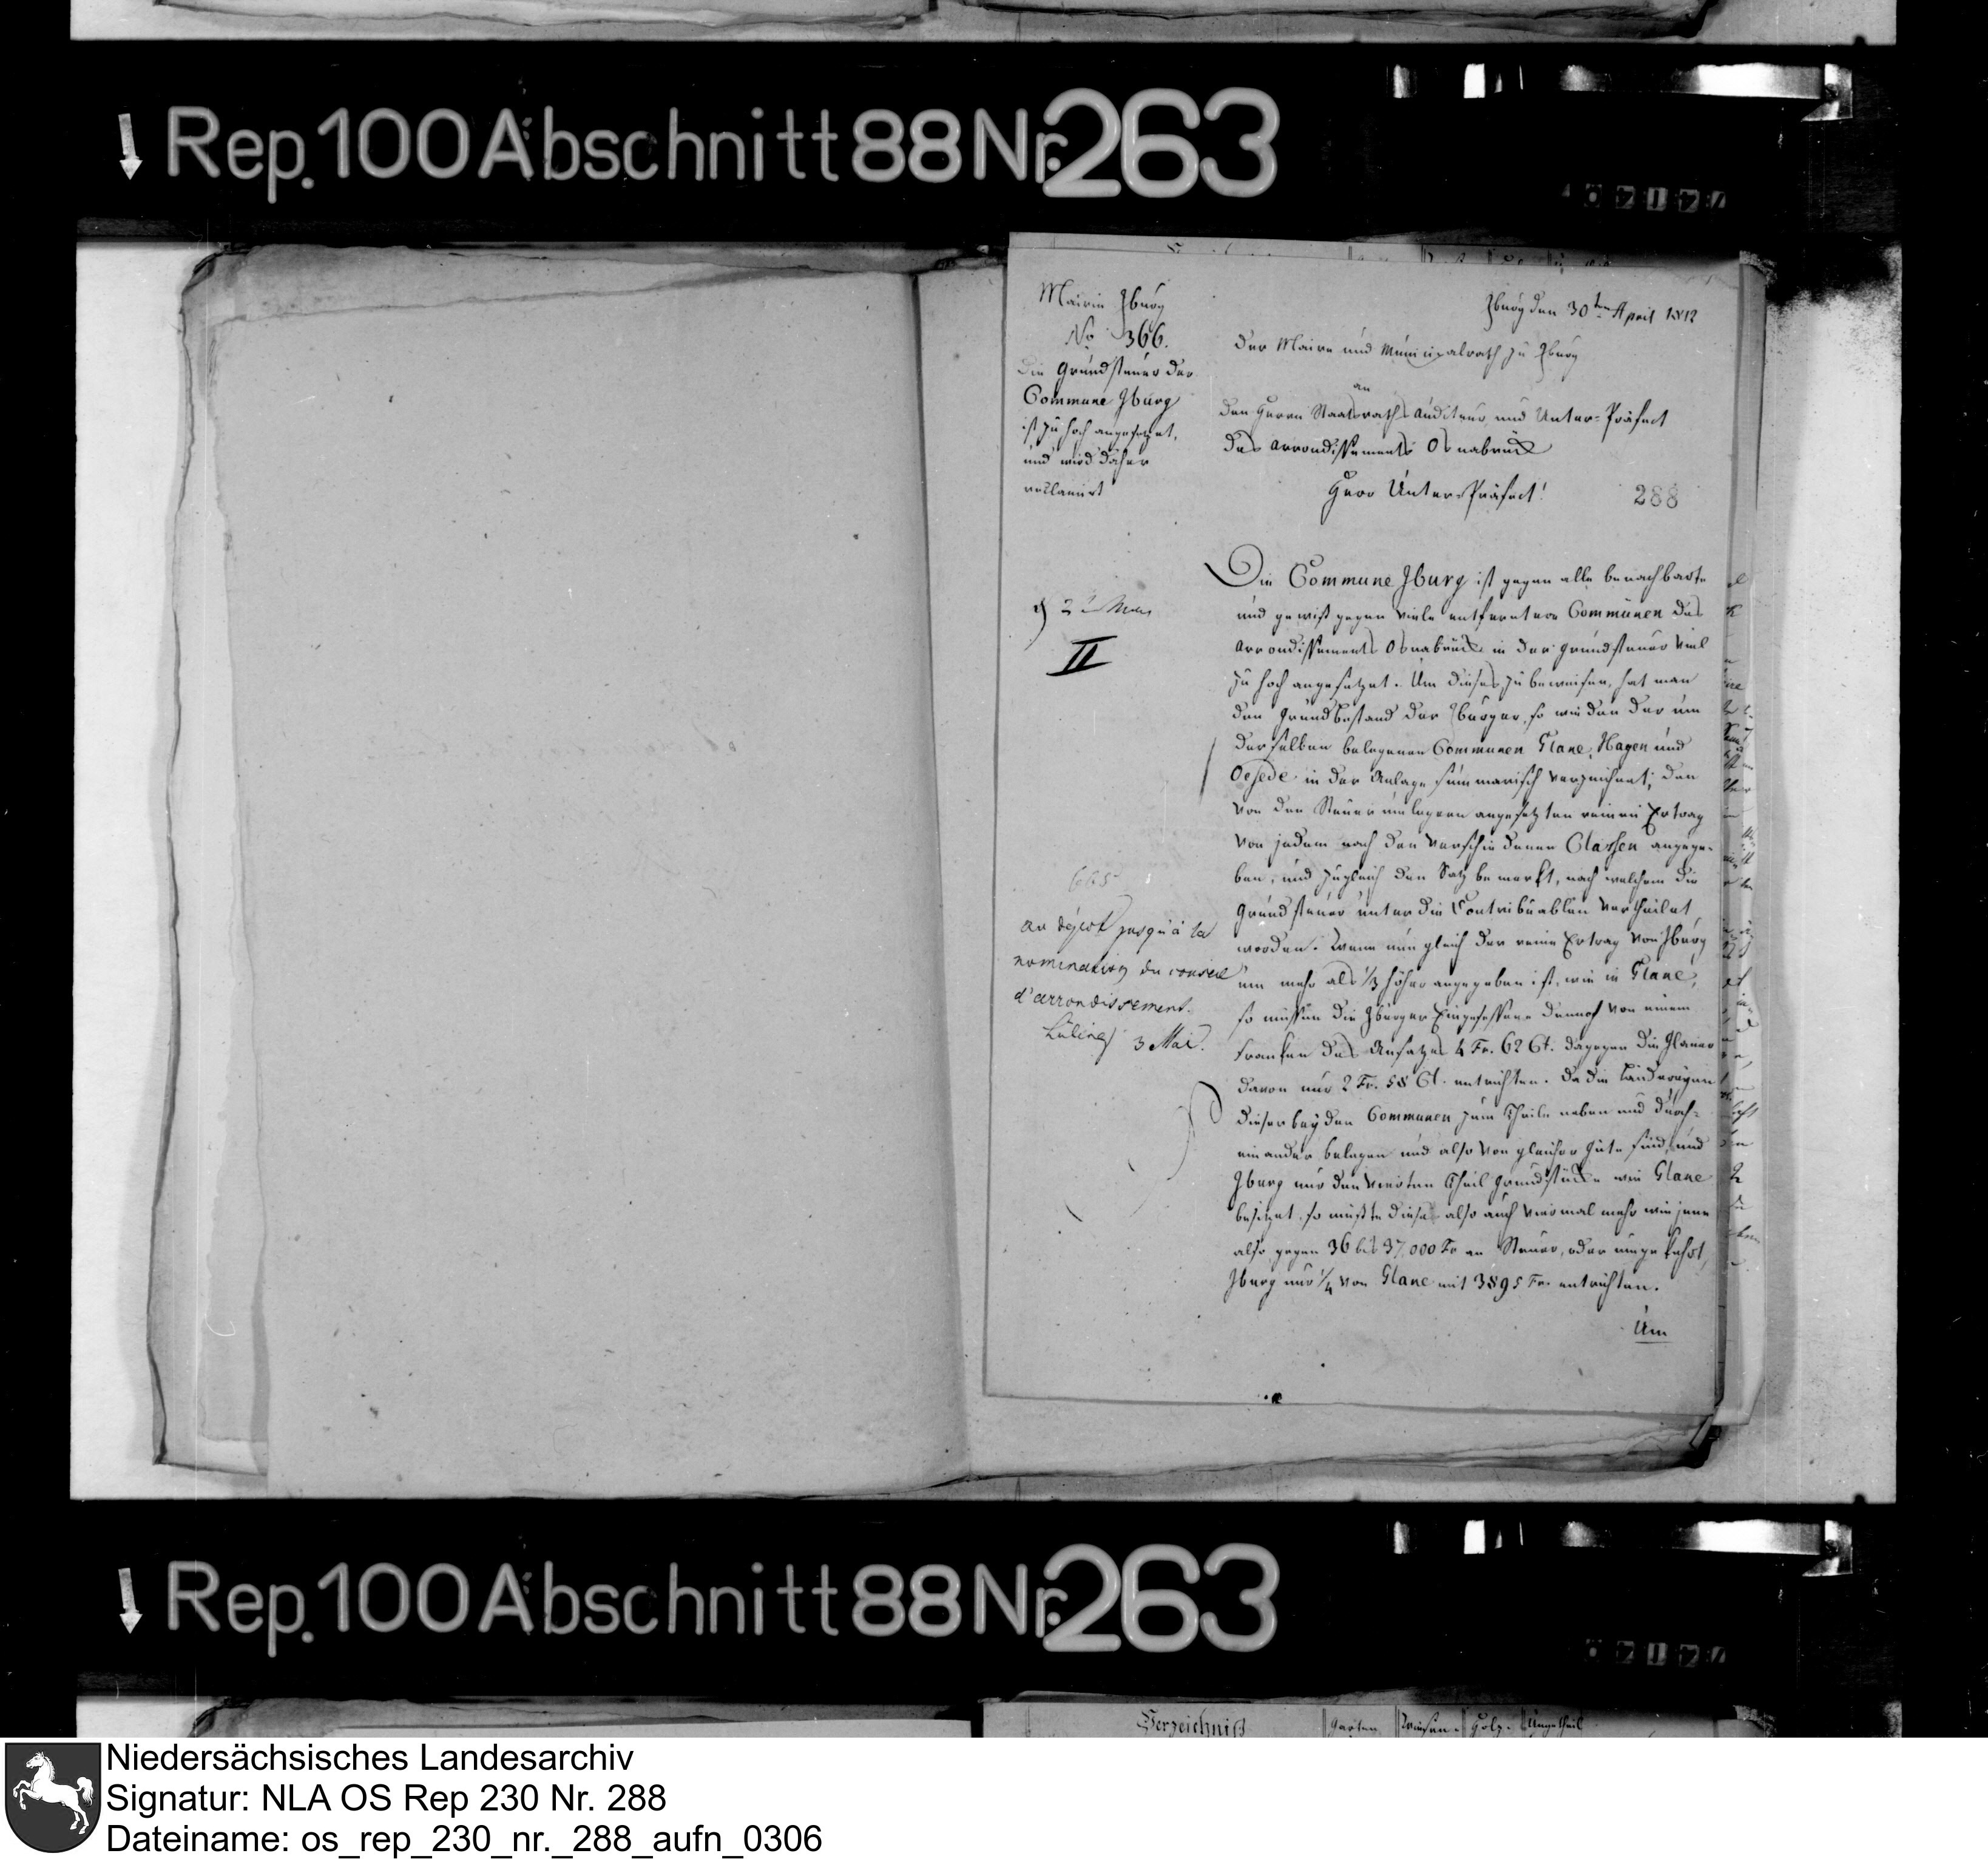 Rep. 100 Abschnitt 88 Nr. 263
Mairie Iburg
No 366.
Die Grundsteuer der
Commune Iburg
ist zu hoch angesetzet,
und wird daher
reclamirt
Iburg den 30ten April 1812
Der Maire und Municipalrath zu Iburg
an
den Herrn Staatsraths Auditeur und Unter-Präfect
des Arrondissements Osnabrück
Herr Unter-Präfect!
288
II
au dépot jusqu'à la
nomination du conseil
d'arrondissement.
3 Mai.
Die Commune Iburg ist gegen alle benachbarte
und gewiß gegen viele entferntere Communen des
Arrondissements Osnabrück in der Grundsteuer viel
zu hoch angesetzet. Um dieses zu beweisen, hat man
den Grundbestand der Iburger, so wie den der um
derselben belegenen Communen Glane, Hagen und
Oesede in der Anlage summarisch verzeichnet; den
von den Steuerumlegern angesetzten reinen Ertrag
von jedem nach den verschiedenen Classen angege-
ben, und zugleich den Satz bemerkt, nach welchem die
Grundsteuer unter die Contribuablen vertheilet
worden. Wenn nun gleich der reine Ertrag von Iburg
um mehr als 1/3 höher angegeben ist, wie in Glane,
so müssen die Iburger Eingesessene dennoch von einem
Franken des Ansatzes 4 Fr. 62 Ct. dagegen die Glaner
davon nur 2 Fr. 58 Ct. entrichten. Da die Ländereyen
dieser beyden Communen zum Theile neben und durch-
einander belegen und also von gleicher Güte sind, und
Iburg nur den vierten Theil Grundstücke wie Glane
besitzet, so müßte dieses also auch viermal mehr wie jene
also gegen 36 bis 37,000 Fr an Steuer, oder umgekehrt,
Iburg nur 1/4 von Glane mit 3895 Fr. entrichten.
Um
Rep. 100 Abschnitt 88 Nr. 263
Verzeichniß
Garten
Wiesen
Holz
Niedersächsisches Landesarchiv
Signatur: NLA OS Rep 230 Nr. 288
Dateiname: os_rep_230_nr._288_aufn_0306